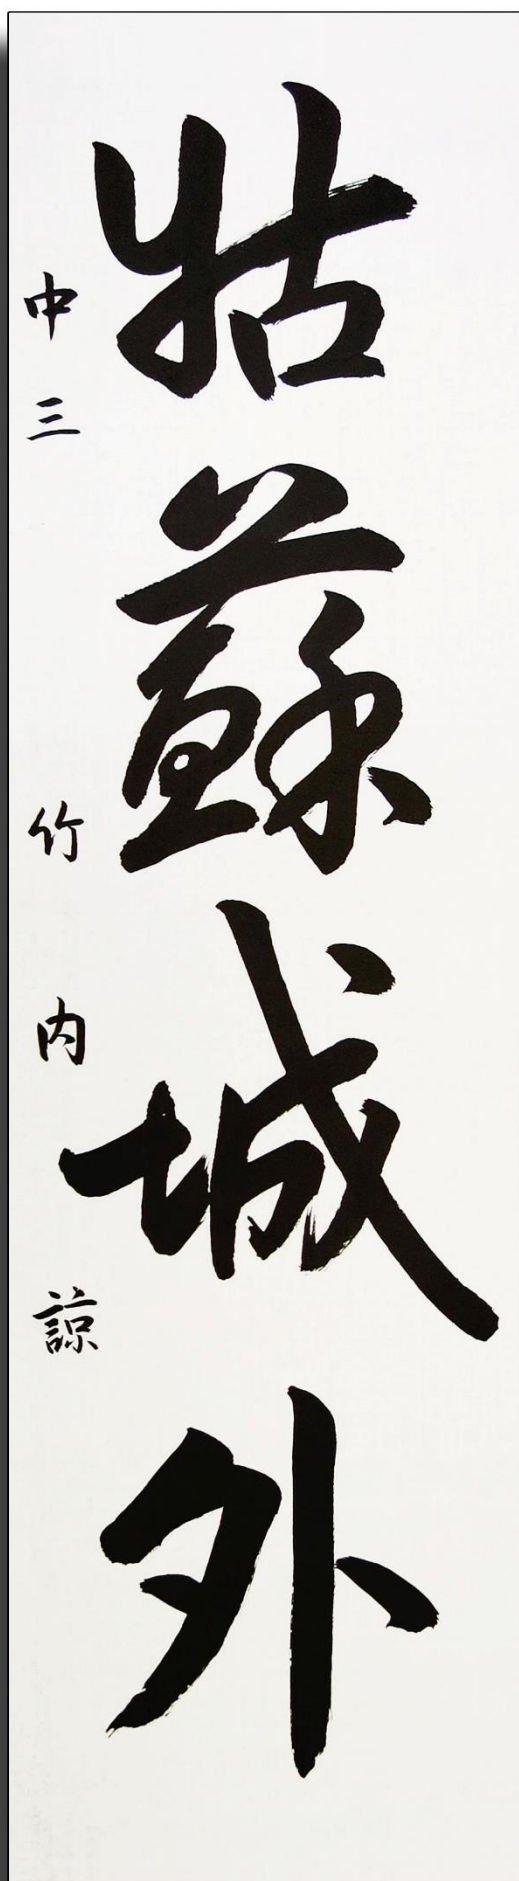 姑蘇城外
中三 竹内諒